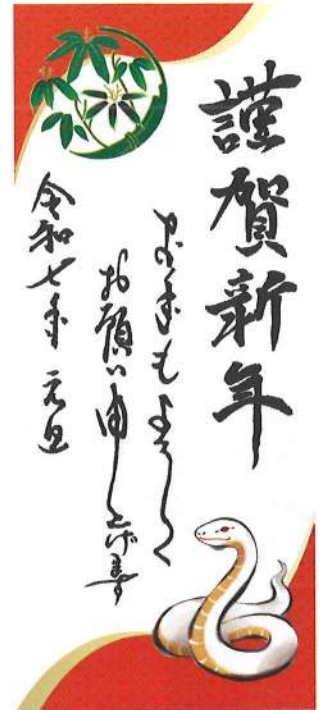 謹賀新年
本年もよろしく
お願い申し上げます
令和七年 元旦